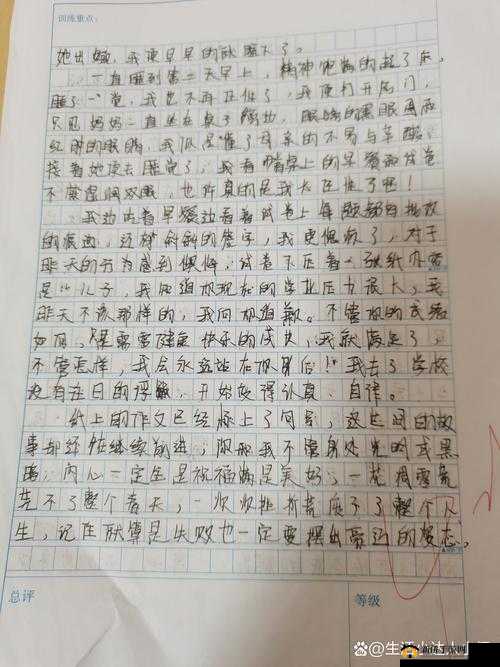 训练重点：
她出嫁，我便早早的就睡下了。
一直睡到第二天早上，精神饱满的起了床，
睡了一觉，我也不再在怪了，我便打开房门，
只见妈妈一直坐在桌子旁边，眼睛的黑眼圈
红肿的眼睛，我似是懂了母亲的不易与辛酸，
接着她便去睡觉了，我看情桌上的早餐
不禁湿润双眼，也许真的是我太任性了吧！
我边吃着早餐边看着试卷上每题都有批改
的痕迹，还有 的签字，我更佩服了，对于
昨天的行为感到懊悔，试卷下压着一张纸内容
是“儿子，我知道你现在的学业压力很大，我
昨天不该那样的，我向你道歉。不管你的成绩
如何，只要你健康快乐的成长，我就满足了，
不管怎样，我会永远站在你身后！”我去了学校
没有往日的浮躁，开始变得认真、自律。
纸上的作文已经标上了句号，这世间的故
事却仍在继续前进，你和我不管身处光明或黑
暗，内心一定坚是祝福满是美好，一花凋零荒
芜不了整个春天，一次挫折荒废不了整个人
生，记住就算是失败也一定要摆出豪迈的姿态。
总评
等级
@生活小达人